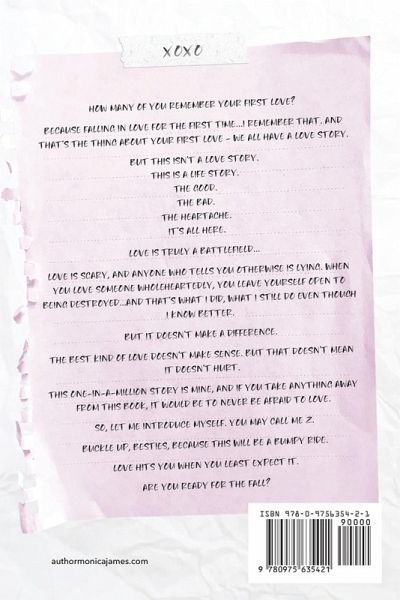 XOXO
HOW MANY OF YOU REMEMBER YOUR FIRST LOVE?
BECAUSE FALLING IN LOVE FOR THE FIRST TIME...I REMEMBER THAT. AND
THAT'S THE THING ABOUT YOUR FIRST LOVE – WE ALL HAVE A LOVE STORY.
BUT THIS ISN'T A LOVE STORY.
THIS IS A LIFE STORY.
THE GOOD.
THE BAD.
THE HEARTACHE.
IT'S ALL HERE.
LOVE IS TRULY A BATTLEFIELD...
LOVE IS SCARY, AND ANYONE WHO TELLS YOU OTHERWISE IS LYING. WHEN
YOU LOVE SOMEONE WHOLEHEARTEDLY, YOU LEAVE YOURSELF OPEN TO
BEING DESTROYED...AND THAT'S WHAT I DID, WHAT I STILL DO EVEN THOUGH
I KNOW BETTER.
BUT IT DOESN'T MAKE A DIFFERENCE.
THE BEST KIND OF LOVE DOESN'T MAKE SENSE. BUT THAT DOESN'T MEAN
IT DOESN'T HURT.
THIS ONE-IN-A-MILLION STORY IS MINE, AND IF YOU TAKE ANYTHING AWAY
FROM THIS BOOK, IT WOULD BE TO NEVER BE AFRAID TO LOVE.
SO, LET ME INTRODUCE MYSELF. YOU MAY CALL ME Z.
BUCKLE UP, BESTIES, BECAUSE THIS WILL BE A BUMPY RIDE.
LOVE HITS YOU WHEN YOU LEAST EXPECT IT.
ARE YOU READY FOR THE FALL?
ISBN 978-0-9756354-2-1
90000
9 780975 635421
authormonicajames.com